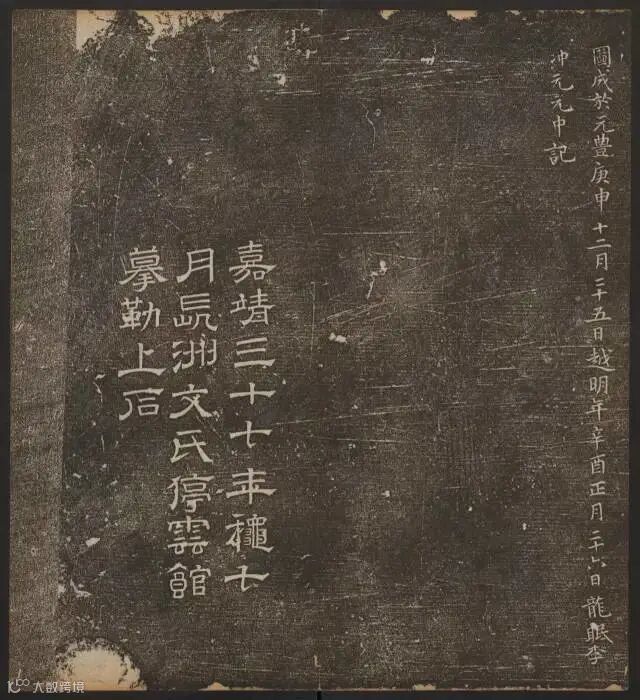 圖成於元豊庚申十二月二十五日越明年辛酉正月二十六日龍眠李
冲元元中記
嘉靖三十七年龝七
月長洲文氏停雲館
摹勒上石
大数跨境